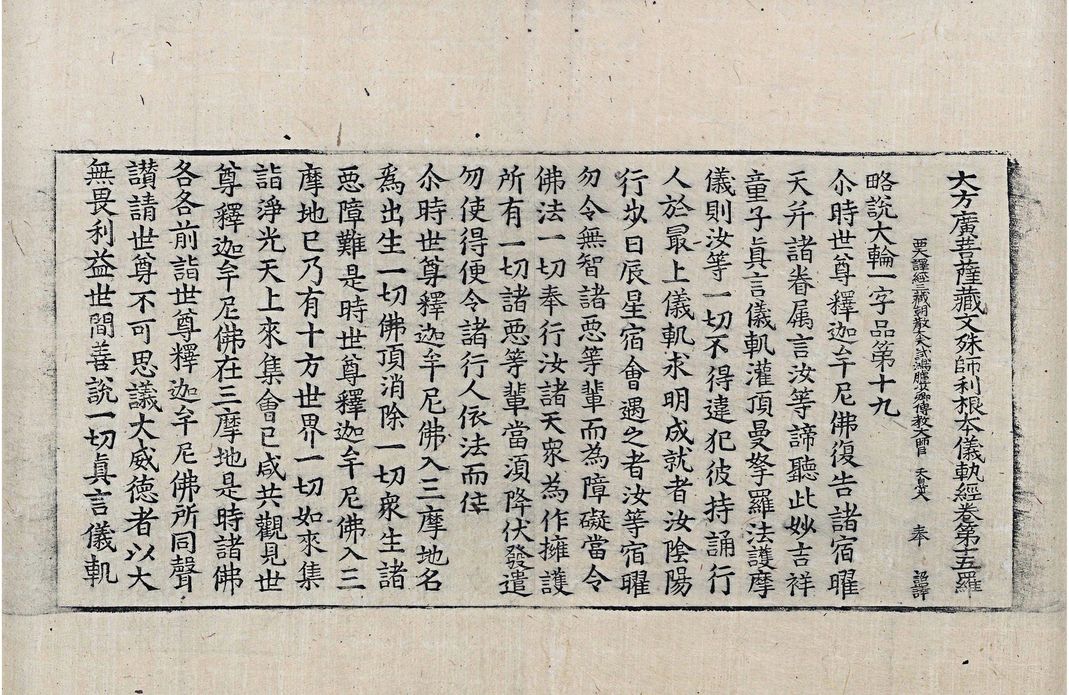 大方廣菩薩藏文殊師利根本儀軌經卷第十五 羅
西天譯經三藏朝散大夫試鴻臚少卿傳教大師臣 天息災 奉 詔譯
略說大輪一字品第十九
尒時世尊釋迦牟尼佛復告諸宿曜
天幷諸眷属言汝等諦聽此妙吉祥
童子眞言儀軌灌頂曼拏羅法護摩
儀則汝等一切不得違犯彼持誦行
人於㝡上儀軌求明成就者汝陰陽
行步日辰星宿會遇之者汝等宿曜
勿令無智諸惡等輩而為障礙當令
佛法一切奉行汝諸天衆為作擁護
所有一切諸惡等輩當須降伏發遣
勿使得便令諸行人依法而住
尒時世尊釋迦牟尼佛入三摩地名
爲出生一切佛頂消除一切衆生諸
惡障難是時世尊釋迦牟尼佛入三
摩地已乃有十方世界一切如來集
詣淨光天上來集會已咸共觀見世
尊釋迦牟尼佛在三摩地是時諸佛
各各前詣世尊釋迦牟尼佛所同聲
讃請世尊不可思議大威德者以大
無畏利益世間善說一切眞言儀軌